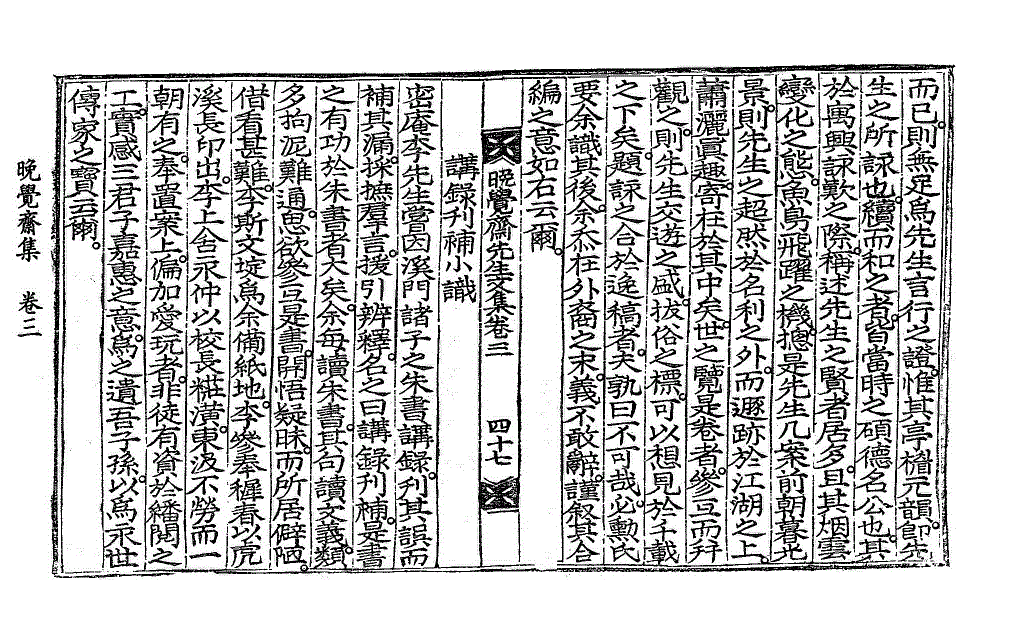 而已。則無足爲先生言行之證。惟其亭檐元韻。卽先
生之所詠也。續而和之者。皆當時之碩德名公也。其
於寓興詠歎之際。稱述先生之賢者居多。且其烟雲
變化之態。魚鳥飛躍之機。摠是先生几案前朝暮光
景。則先生之超然於名利之外。而遯跡於江湖之上。
蕭灑眞趣。寄在於其中矣。世之覽是卷者。參互而幷
觀之。則先生交遊之盛。拔俗之標。可以想見於千載
之下矣。題詠之合於逸稿者。夫孰曰不可哉。必勳氏
要余識其後。余忝在外裔之末。義不敢辭。謹叙其合
編之意如右云爾。
晩覺齋先生文集卷三 四十七
講錄刊補小識
密庵李先生嘗因溪門諸子之朱書講錄。刊其誤而
補其漏。採摭羣言。援引辨釋。名之曰講錄刊補。是書
之有功於朱書者大矣。余每讀朱書。其句讀文義。類
多拘泥難通。思欲參互是書。開悟疑昧。而所居僻陋。
借看甚難。今斯文埞爲余備紙地。李參奉穉春以虎
溪長印出。李上舍永仲以校長糚潢。東汲不勞而一
朝有之。奉置案上。偏加愛玩者。非徒有資於繙閱之
工。實感三君子嘉惠之意。爲之遺吾子孫。以爲永世
傳家之寶云爾。
晩覺齋集 卷三